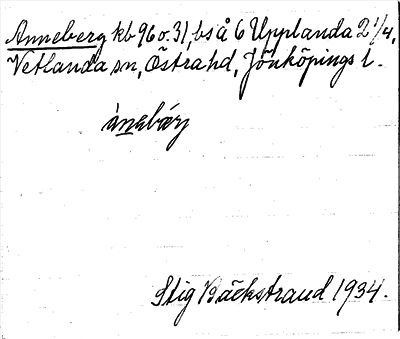 Anneberg kb 96 o. 31, bs å 6 Upplanda 2 1/4,
Vetlanda sn, Östra hd, Jönköpings l.
ànebáry
Stig Bäckstrand 1934.